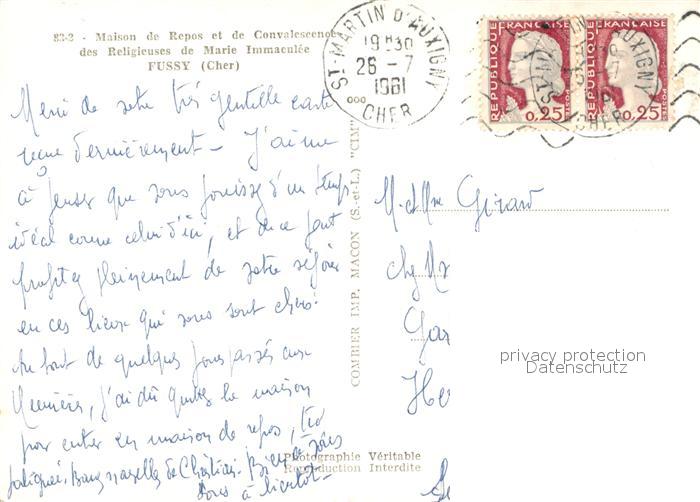 83-2 - Maison de Repos et de Convalescence
des Religieuses de Marie Immaculée
FUSSY (Cher)
ST-MARTIN D'AUXIGNY
19H30
26 - 7
1961
CHER
REPUBLIQUE FRANÇAISE
POSTES
0,25
REPUBLIQUE FRANÇAISE
POSTES
0,25
Merci de votre très gentille carte
reçue dernièrement - J'aime
à penser que vous jouissez d'un temps
idéal comme celui d'ici, et de ce fait
profitez pleinement de votre séjour
en ces lieux qui vous sont chers.
Au bout de quelques jours passés aux
, j'ai dû quitter la maison
pour entrer en maison de repos, très
fatiguée. Bonnes nouvelles de Christian. Bien à vous
tous à bientôt -
COMBIER IMP. MACON (S.-et-L.) "CIM"
Photographie Véritable
Reproduction Interdite
M. et Mme Girard
chez Mr
Gar
He
privacy protection
Datenschutz